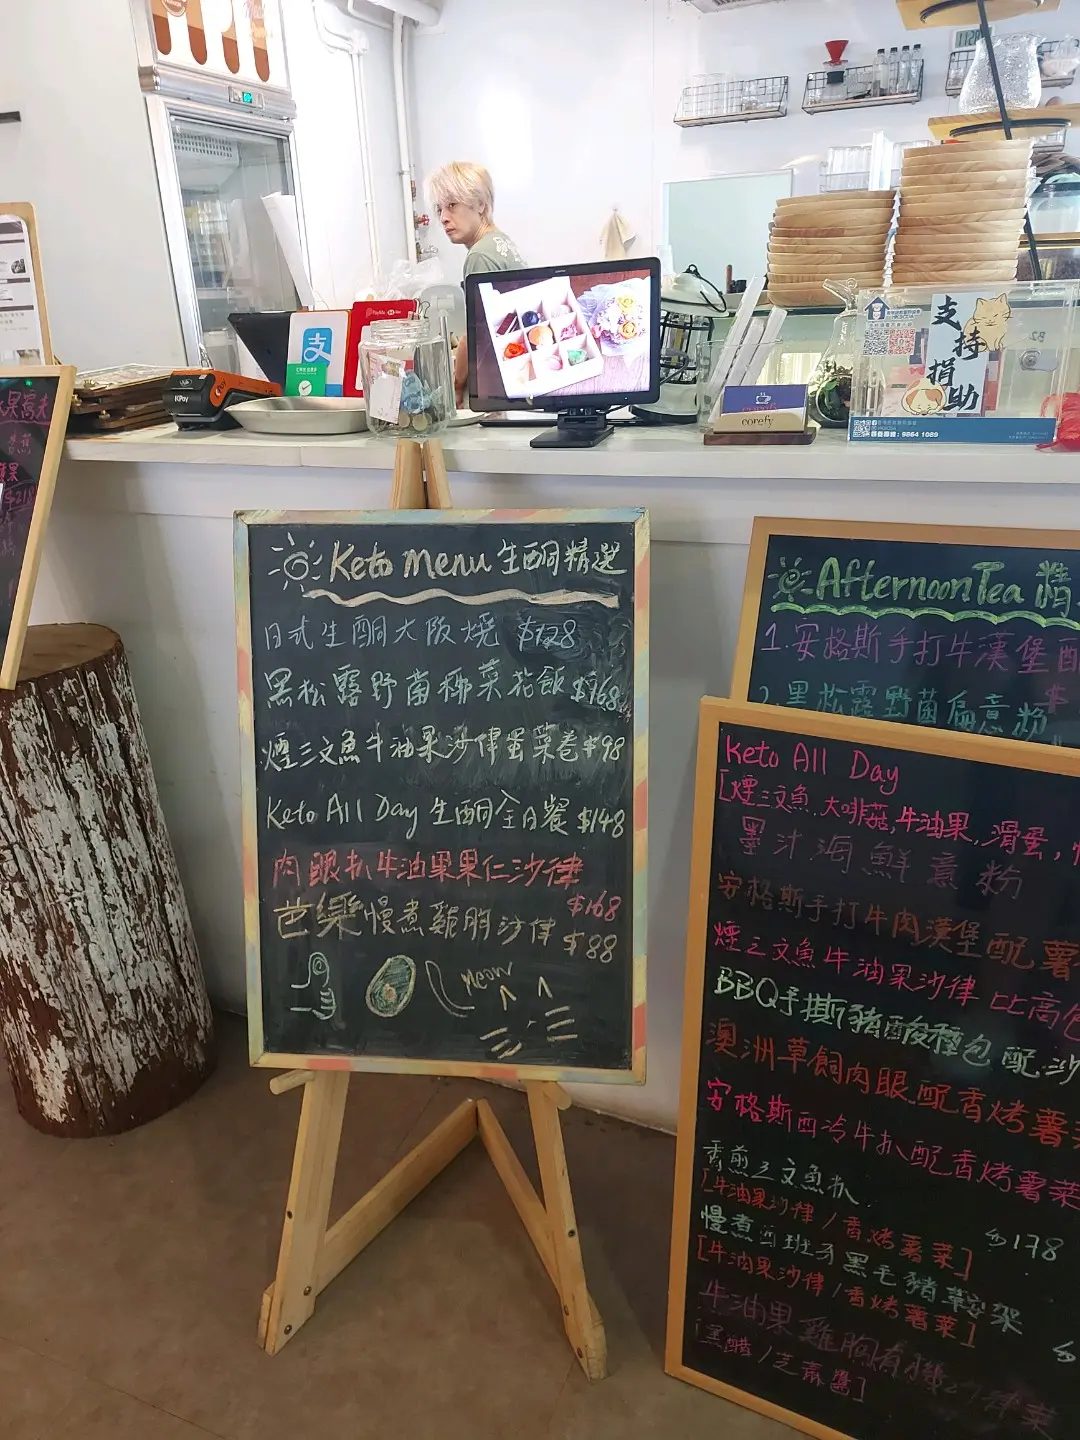 支持
捐助
9864 1089
KPay
corefy
Keto menu 生酮精選
日式生酮大阪燒 $128
黑松露野菌椰菜花飯 $168
煙三文魚牛油果沙律蛋菜卷 $98
Keto All Day 生酮全日餐 $148
肉眼扒牛油果果仁沙律
$168
芭樂慢煮雞胸沙律 $88
Meow
Afternoon Tea 精
1.安格斯手打牛漢堡配
2.黑松露野菌扁意粉
Keto All Day
[煙三文魚,大啡菇,牛油果,滑蛋,
墨汁海鮮意粉
安格斯手打牛肉漢堡配薯
煙三文魚牛油果沙律比高包
BBQ手撕豬酸種包配沙
澳洲草飼肉眼配香烤薯菜
安格斯西冷牛扒配香烤薯菜
香煎三文魚扒
[牛油果沙律/香烤薯菜] $178
慢煮西班牙黑毛豬鞍架
[牛油果沙律/香烤薯菜] $
牛油果雞胸有機沙律菜
[黑醋/芝麻醬]